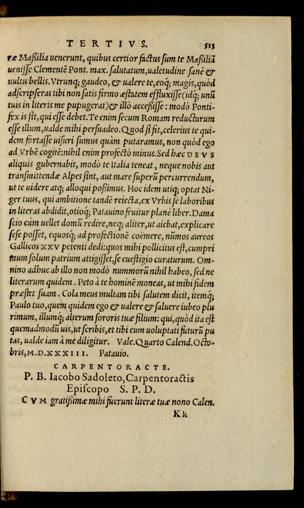 TERTIVS. 513
ræ Maßiliā uenerunt, quibus certior factus sum te Maßiliā
uenisse Clementē Pont. max. salutatum, ualetudine sanè &
uultu bellis. Vtrunq; gaudeo, & ualere te, eoq; magis, quòd
adscripseras tibi non satis firmo æstatem effluxisse (idq; unū
tuis in literis me pupugerat) & illò accessisse: modò Ponti-
fex is sit, qui esse debet. Te enim secum Romam reducturum
esse illum, ualde mihi persuadeo. Quod si fit, celerius te qui-
dem fortasse uisuri sumus quàm putaramus, non quòd ego
ad Vrbē cogitē: nihil enim profectò minus. Sed hæc DEVS
aliquis gubernabit, modò te Italia teneat, neque nobis aut
transmittendæ Alpes sint, aut mare superū percurrendum,
ut te uidere atq; alloqui poßimus. Hoc idem utiq; optat Ni-
ger tuus, qui ambitione tandē reiecta, ex Vrbis se laboribus
in literas abdidit, otioq; Patauino fruitur planè liber. Dama
scio cùm uellet domū redire, neq; aliter, ut aiebat, explicare
sese posset, equosq; ad profectionē coëmere, nūmos aureos
Gallicos XXV petenti dedi: quos mihi pollicitus est, cumpri
mùm solum patrium attigisset, se euestigio curaturum. Om-
nino adhuc ab illo non modò nummorū nihil habeo, sed ne
literarum quidem. Peto à te hominē moneas, ut mihi fidem
præstet suam. Cola meus multam tibi salutem dicit, itemq;
Paulo tuo, quem quidem ego & ualere & saluere iubeo plu
rimum, illumq; alterum sororis tuæ filium: qui, quòd ita est
quemadmodū uis, ut scribis, et tibi cum uoluptati futurū pu
tas, ualde iam à me diligitur. Vale. Quarto Calend. Octo-
bris, M. D. XXXIII. Patauio.
CARPENTORACTE.
P. B. Iacobo Sadoleto, Carpentoractis
Episcopo S. P. D.
CVM gratißimæ mihi fuerunt literæ tuæ nono Calen.
Kk